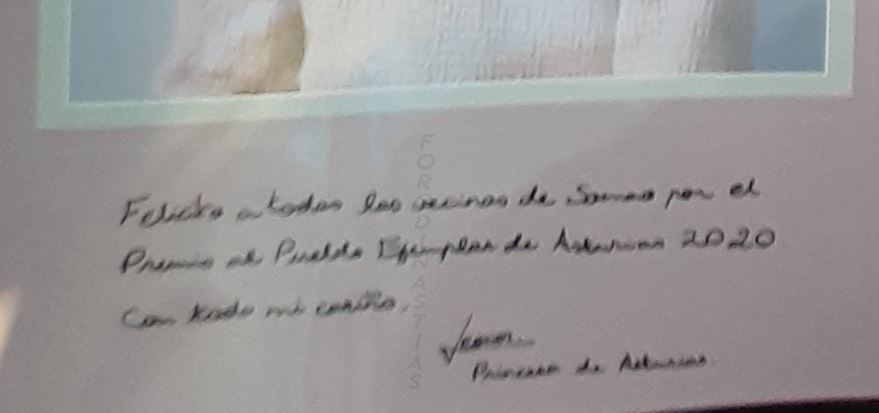 Felicito a todos los vecinos de Somao por el
Premio al Pueblo Ejemplar de Asturias 2020
Con todo mi cariño,
Leonor
Princesa de Asturias
FORO DINASTIAS